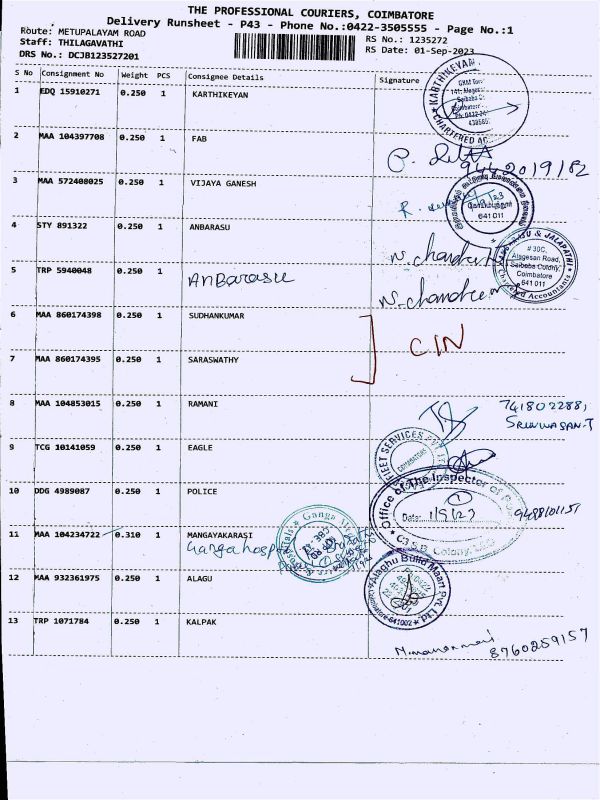 THE PROFESSIONAL COURIERS, COIMBATORE
Delivery Runsheet - P43 - Phone No.:0422-3505555 - Page No.:1
Route: METUPALAYAM ROAD
RS No.: 1235272
Staff: THILAGAVATHI
RS Date: 01-Sep-2023
DRS No.: DCJB123527201
S No Consignment No Weight PCS Consignee Details Signature
1 EDQ 15910271 0.250 1 KARTHIKEYAN
KARTHIKEYAN
CHARTERED AC
2 MAA 104397708 0.250 1 FAB
9442019182
3 MAA 572408025 0.250 1 VIJAYA GANESH
641 011
4 STY 891322 0.250 1 ANBARASU
N. chandree
& JALAPATHI
# 30C,
Alagesan Road,
Saibaba Colony,
Coimbatore
641 011
Chartered Accountants
5 TRP 5940048 0.250 1 ANBARASU
N. chandree
6 MAA 860174398 0.250 1 SUDHANKUMAR
CIN
7 MAA 860174395 0.250 1 SARASWATHY
8 MAA 104853015 0.250 1 RAMANI
741802288,
SRINIVASAN.T
9 TCG 10141059 0.250 1 EAGLE
FLEET SERVICES
COIMBATORE
10 DDG 4989087 0.250 1 POLICE
Office of The Inspector of
Date: 1/9/23
9488101151
11 MAA 104234722 0.310 1 MANGAYAKARASI
Ganga hospital
12 MAA 932361975 0.250 1 ALAGU
Alaghu Build Maart Pvt. Ltd
Coimbatore-641002
13 TRP 1071784 0.250 1 KALPAK
8760259157